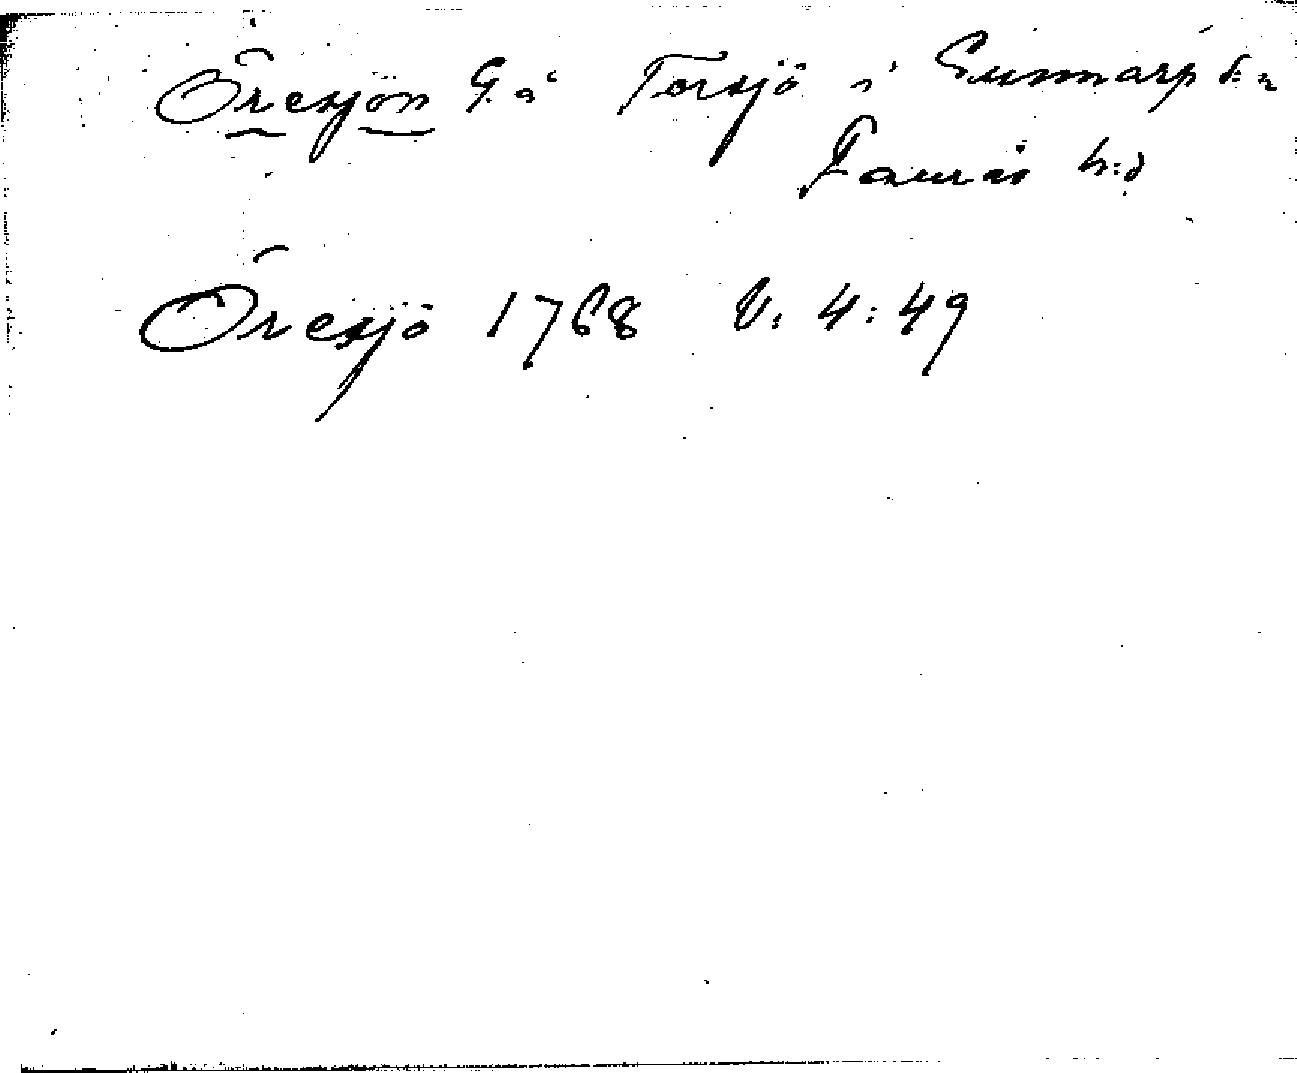 Öresjön G. å Torsjö i Gunnarp s:n
Faurås h:d
Öresjö 1768 V. 4:49